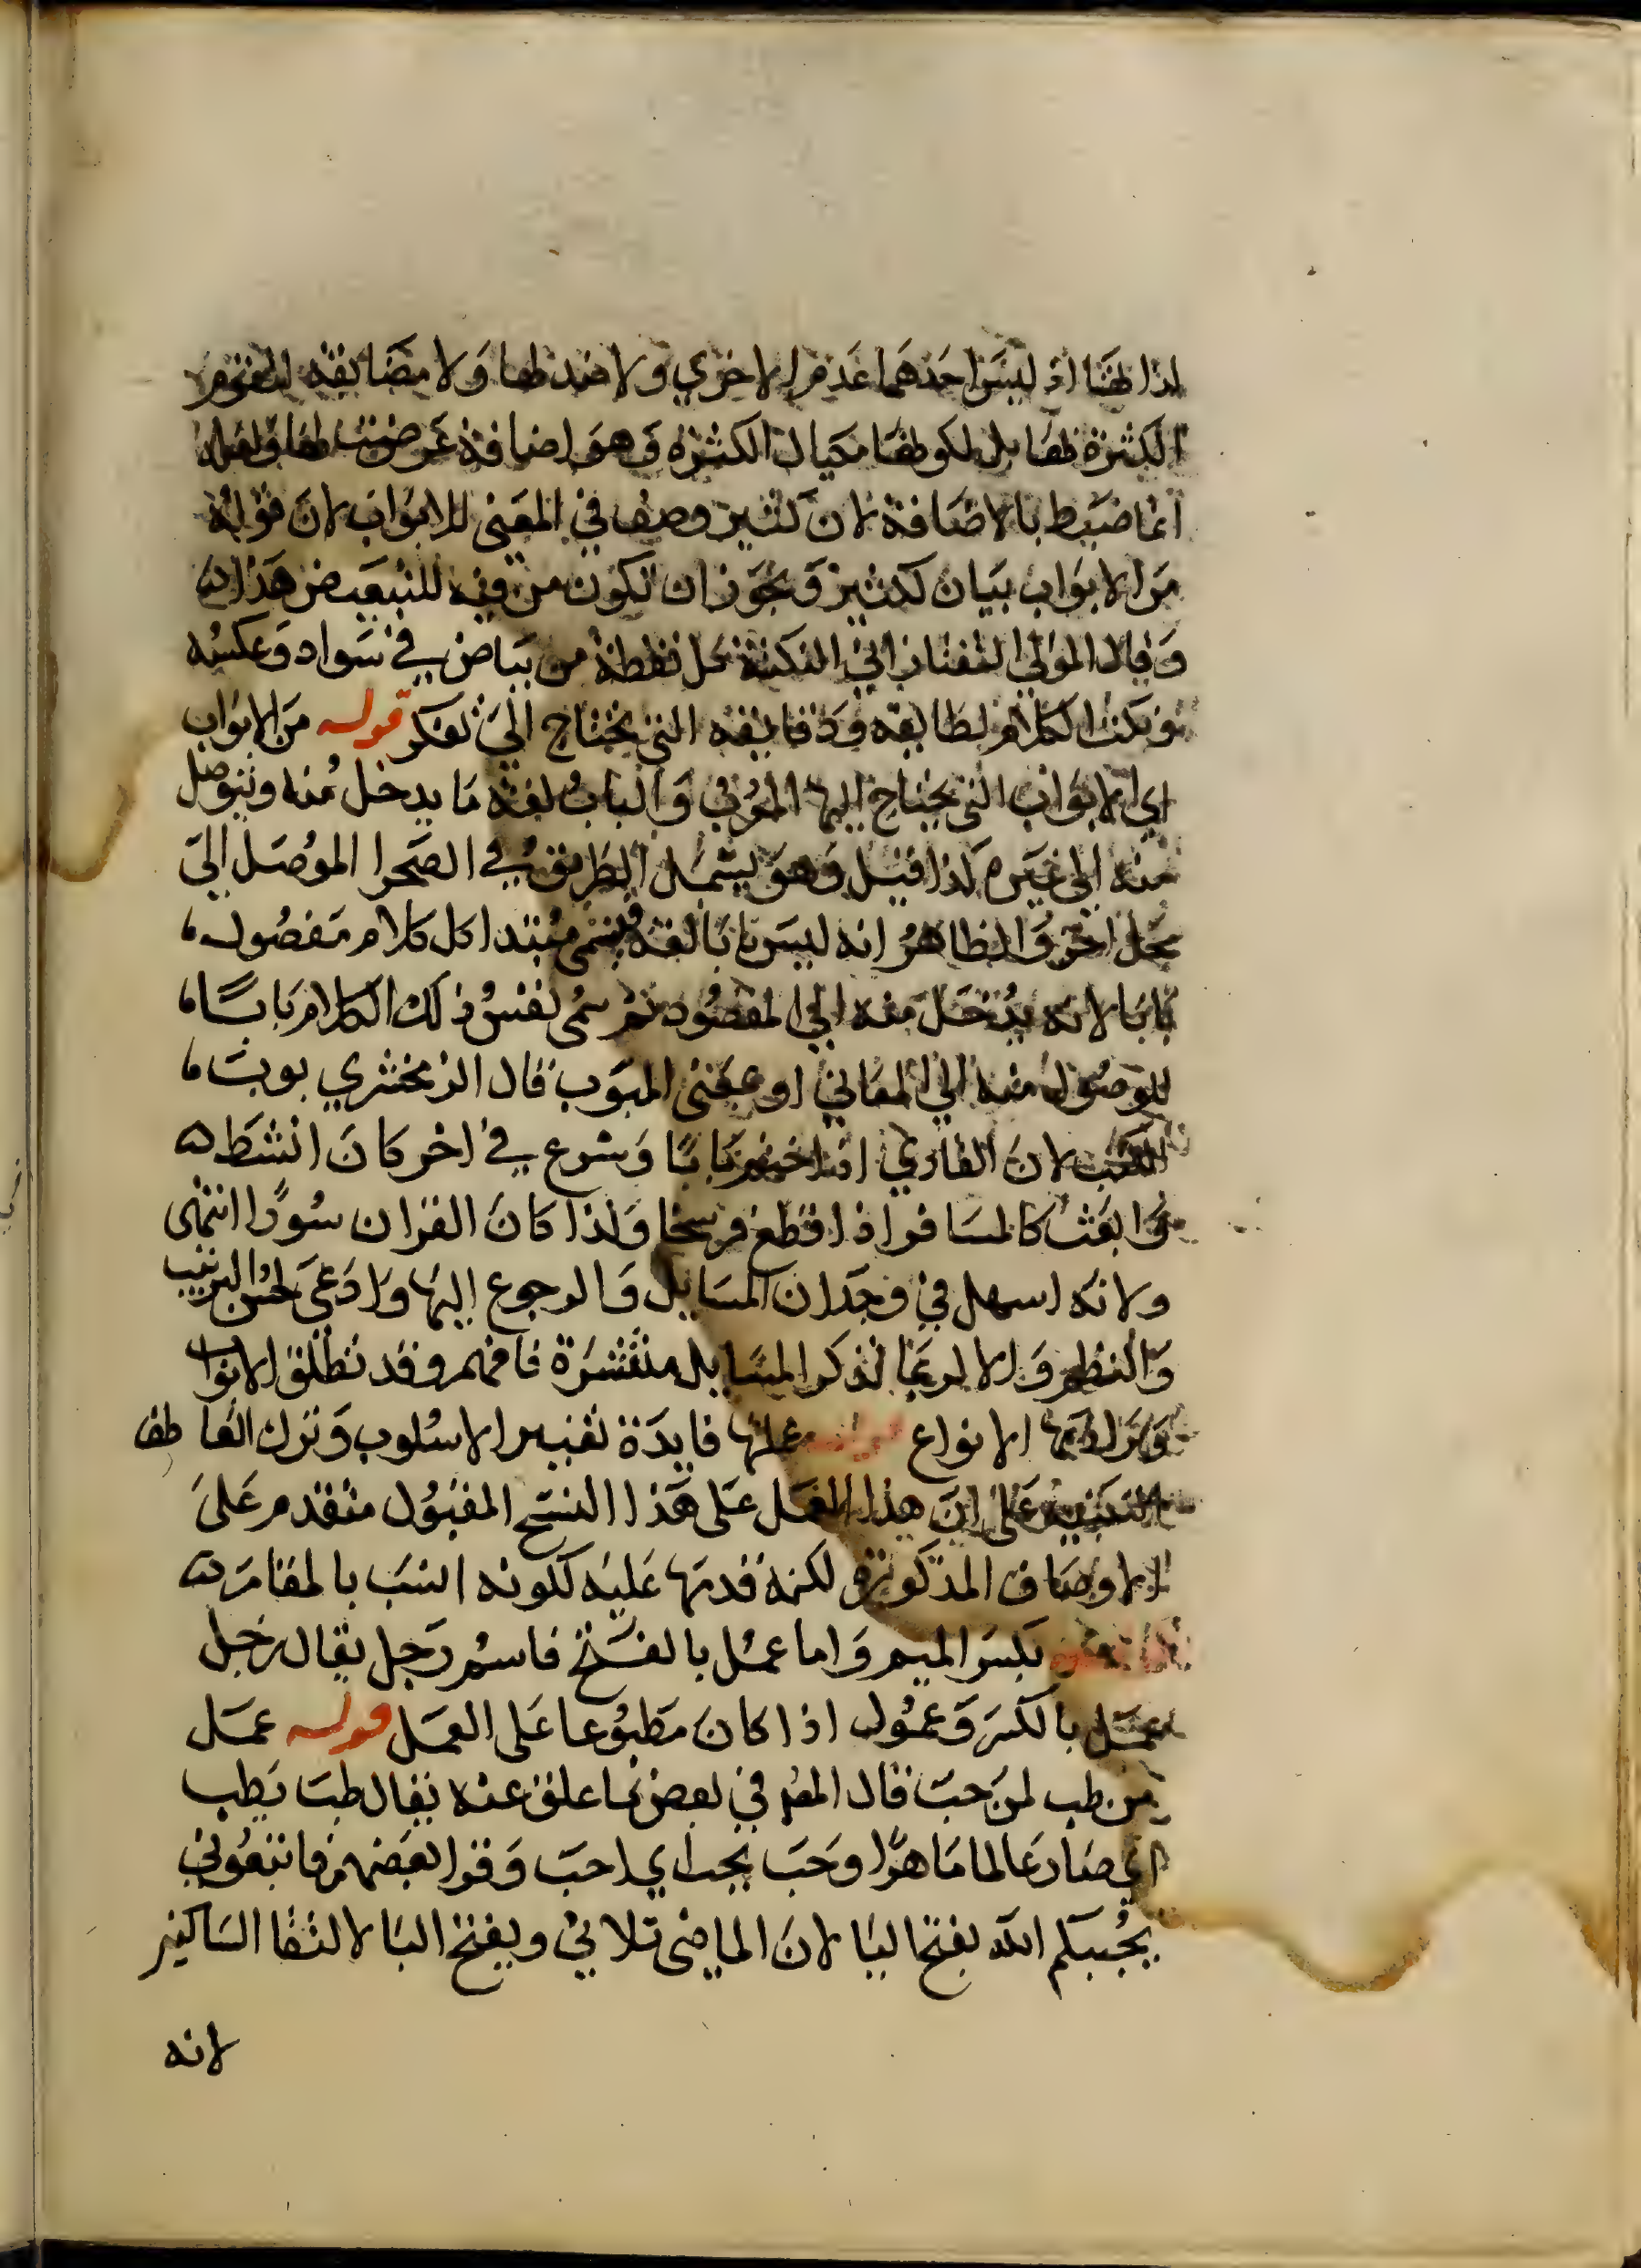 لذاتهما اذ ليس احدهما عدم الاخري ولا ضد لها ولا مضايفه لتقوم
الكثرة بها بل لكونها مكيال الكثرة وهو اضافة عرضت لها وقوله
انما ضبط بالاضافة لان كثير وصف في المعني للابواب لان قوله
من الابواب بيان لكثير ويجوز ان تكون من فيه للتبعيض هذا
وقال المولي التفتازاني النكتة كل نقطة من بياض في سواد وعكسه
ونكت الكلام لطايفه ودقايقه التي تحتاج الي تفكر قوله من الابواب
اي الابواب التي يحتاج اليها المعرب والباب لغة ما يدخل منه ويتوصل
منه الي غيره كذا قيل وهو يشمل الطريق في الصحرا الموصل الي
محل اخر والظاهر انه ليس بابا لغة فسمي مبتدا كل كلام مفصول
بابا لانه يدخل منه الي المقصود ثم سمي نفس ذلك الكلام بابا
للوصول منه الي المعاني او بمعني المبوب قال الزمخشري بوبت
الكتب لان القاري اذا ختم بابا وشرع في اخر كان انشط
وابعث كالمسافر اذا قطع فرسخا ولذا كان القران سورا انتهي
ولانه اسهل في وجدان المسايل والرجوع اليها وادعي لحسن الترتيب
والنظم والا لربما تذكر المسايل منتشرة فافهم وقد تطلق الابواب
ويراد بها الانواع قوله عملها فايدة تغيير الاسلوب وترك العاطف
التنبيه علي ان هذا العمل علي هذا النسج المقبول متقدم علي
الاوصاف المذكورة لكنه قدمها عليه لكونه انسب بالمقام
بكسر الميم واما عمل بالفتح فاسم رجل يقال رجل
عمل بالكسر وعمول اذا كان مطبوعا علي العمل قوله عمل
من طب لمن حب قال المص في بعض ما علق عنه يقال طب يطب
اي صار عالما ماهرا وحب يحب اي احب وقرا بعضهم فاتبعوني
يحببكم الله بفتح اليا لان الماضي ثلاثي ويفتح البا لالتقا الساكنين
لانه